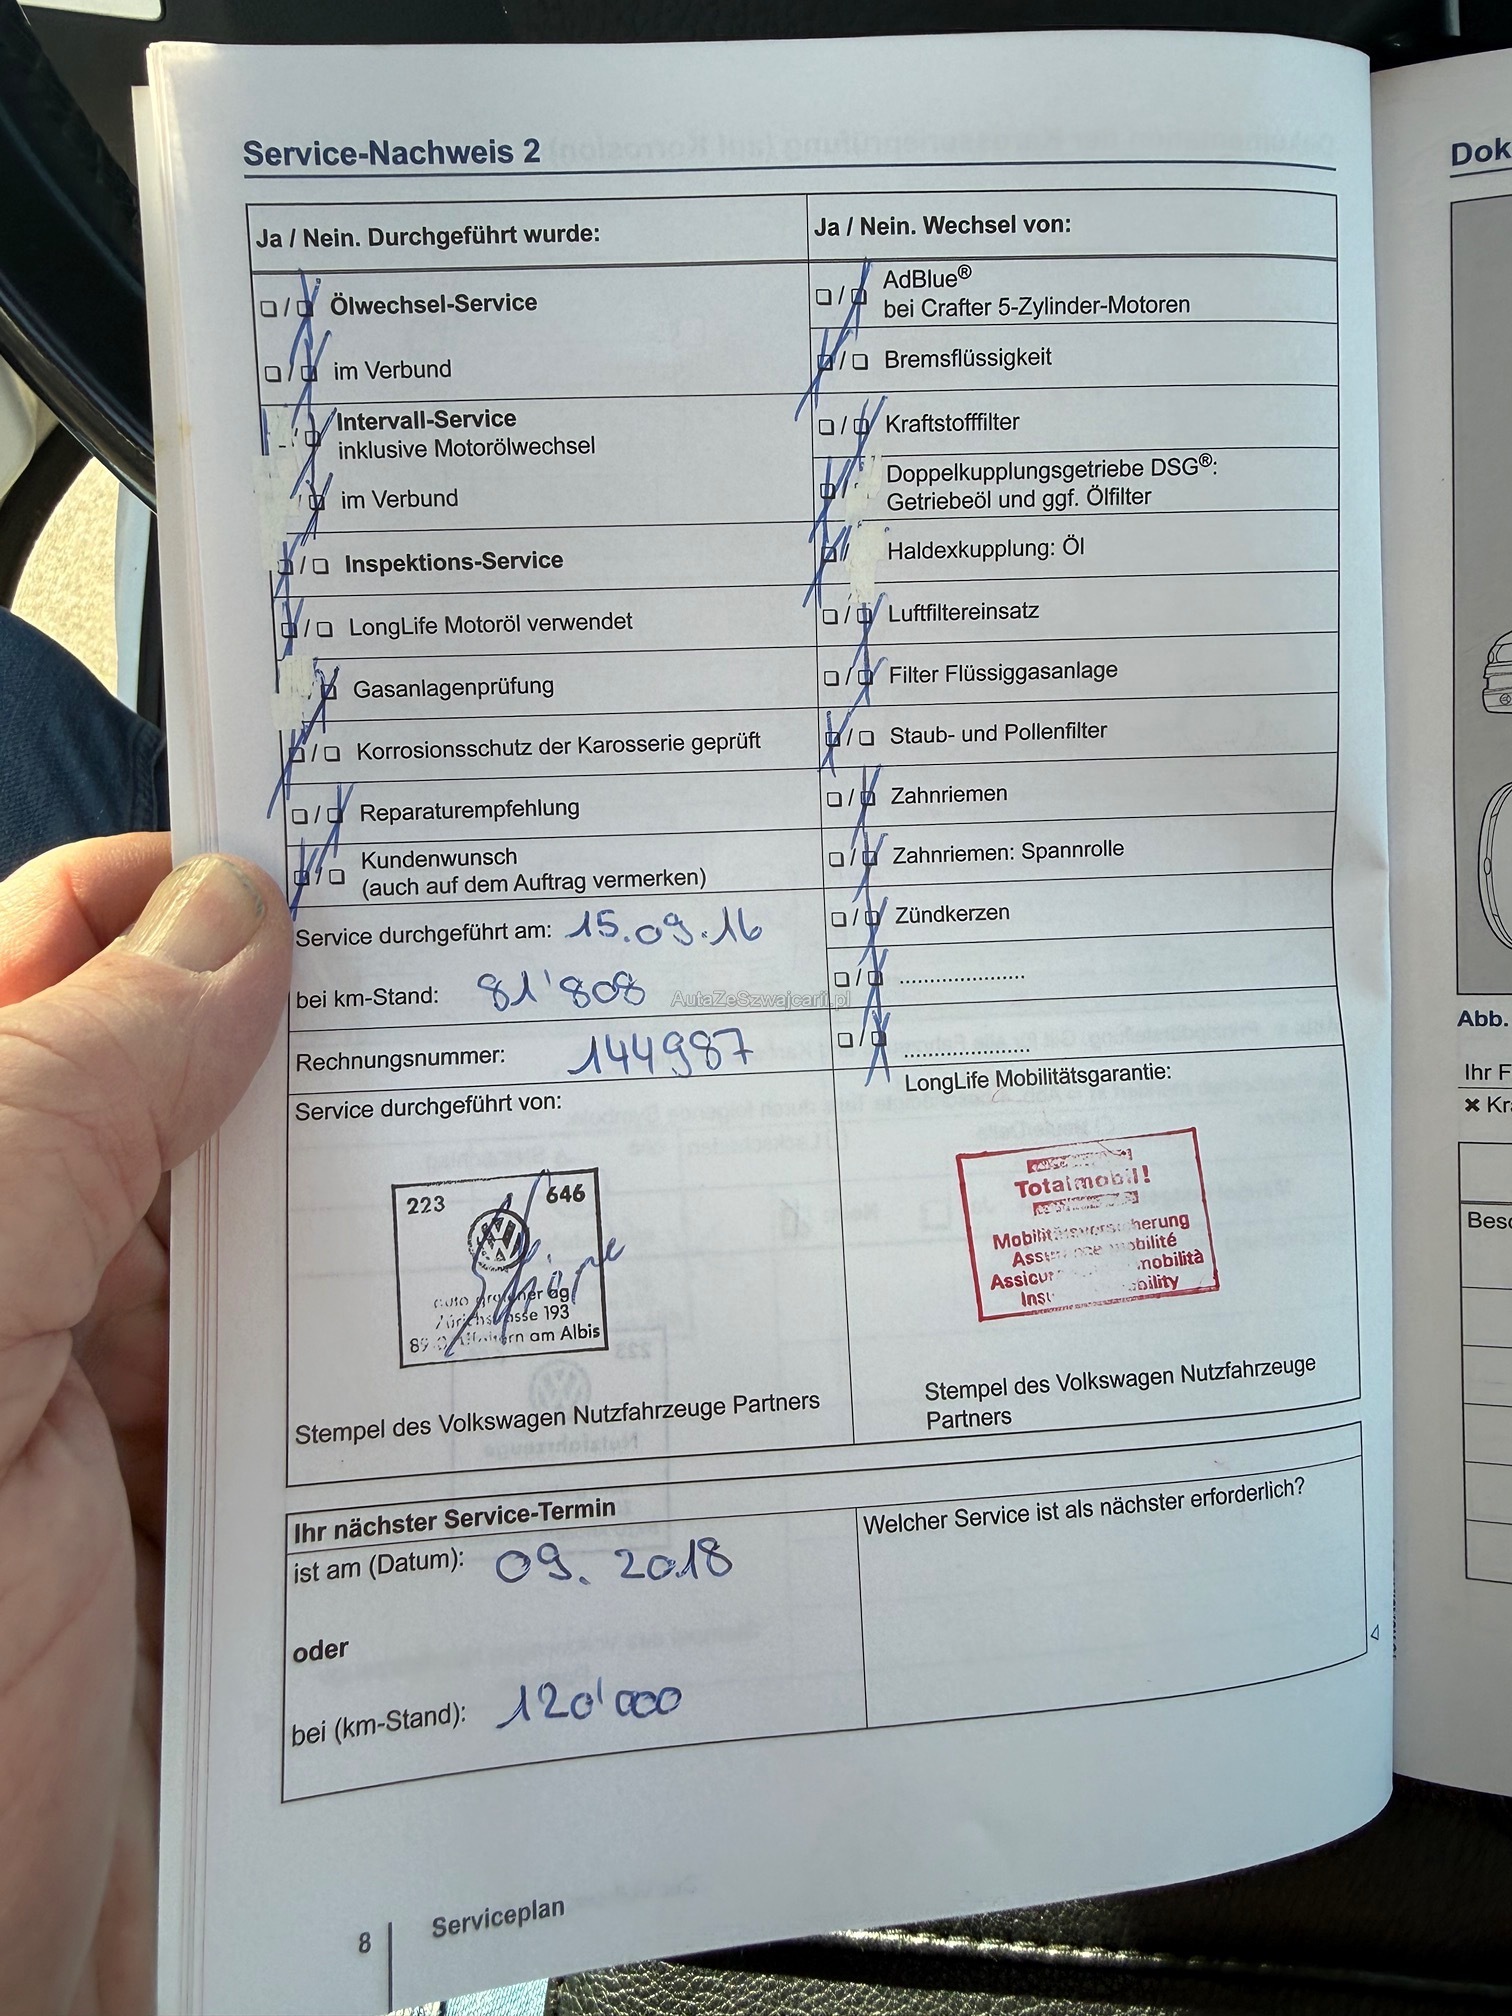 Service-Nachweis 2
Ja / Nein. Durchgeführt wurde:
Ölwechsel-Service
im Verbund
Intervall-Service
inklusive Motorölwechsel
im Verbund
Inspektions-Service
LongLife Motoröl verwendet
Gasanlagenprüfung
Korrosionsschutz der Karosserie geprüft
Reparaturempfehlung
Kundenwunsch
(auch auf dem Auftrag vermerken)
Service durchgeführt am: 15.09.16
bei km-Stand: 81'808
Rechnungsnummer: 144987
Service durchgeführt von:
223 646
ag
193
am Albis
Stempel des Volkswagen Nutzfahrzeuge Partners
Ja / Nein. Wechsel von:
AdBlue®
bei Crafter 5-Zylinder-Motoren
Bremsflüssigkeit
Kraftstofffilter
Doppelkupplungsgetriebe DSG®:
Getriebeöl und ggf. Ölfilter
Haldexkupplung: Öl
Luftfiltereinsatz
Filter Flüssiggasanlage
Staub- und Pollenfilter
Zahnriemen
Zahnriemen: Spannrolle
Zündkerzen
.....................
.....................
LongLife Mobilitätsgarantie:
Totalmobil!
Stempel des Volkswagen Nutzfahrzeuge
Partners
AutaZeSzwajcarii.pl
Ihr nächster Service-Termin
ist am (Datum): 09. 2018
oder
bei (km-Stand): 120'000
Welcher Service ist als nächster erforderlich?
8 Serviceplan
Dok
Abb.
Ihr F
Kr
Besc